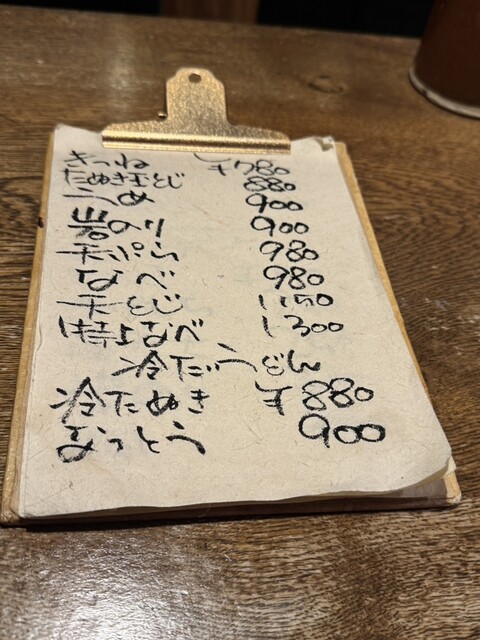 きつね ¥780
たぬき玉とじ 880
うめ 900
岩のり 900
天ぷら 980
なべ 980
天とじ 1,150
特上なべ 1,300
冷だうどん
冷たぬき ¥880
なっとう 900